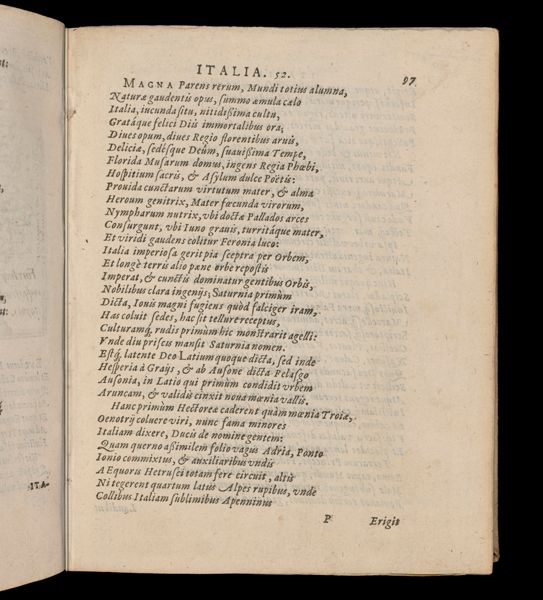 ITALIA. 52.
97
MAGNA Parens rerum, Mundi totius alumna,
Naturæ gaudentis opus, summo æmula cælo
Italia, iucunda situ, nitidißima cultu,
Gratáque felici Diis immortalibus ora;
Diues opum, diues Regio florentibus aruis,
Deliciæ, sedésque Deûm, suauißima Tempe,
Florida Musarum domus, ingens Regia Phœbi,
Hospitium sacris, & Asylum dulce Poëtis:
Prouida cunctarum virtutum mater, & alma
Heroum genitrix, Mater fœcunda virorum,
Nympharum nutrix, vbi doctæ Pallados arces
Consurgunt, vbi Iuno grauis, turritáque mater,
Et viridi gaudens colitur Feronia luco:
Italia imperiosa gerit pia sceptra per Orbem,
Et longè terris alio pane orbe repostis
Imperat, & cunctis dominatur gentibus Orbis,
Nobilibus clara ingenijs; Saturnia primùm
Dicta, Iouis magni fugiens quòd falciger iram,
Has coluit sedes, hac sit tellure receptus,
Culturamq́, rudis primùm hic monstrarit agelli:
Vnde diu priscis mansit Saturnia nomen.
Estq́, latente Deo Latium quoque dicta, sed inde
Hesperia à Graijs, & ab Ausone dicta Pelasgo
Ausonia, in Latio qui primùm condidit vrbem
Aruncam, & validis cinxit noua mœnia vallis.
Hanc primùm Hectoreæ caderent quàm mœnia Troiæ,
Oenotrij coluere viri, nunc fama minores
Italiam dixere, Ducis de nomine gentem:
Quam querno aßimilem folio vagus Adria, Ponto
Ionio commixtus, & auxiliaribus vndis
AEquoris Hetrusci totam fere circuit, altis
Ni tegerent quartum latus Alpes rupibus, vnde
Collibus Italiam sublimibus Apenninus
P
Erigit
ITA-